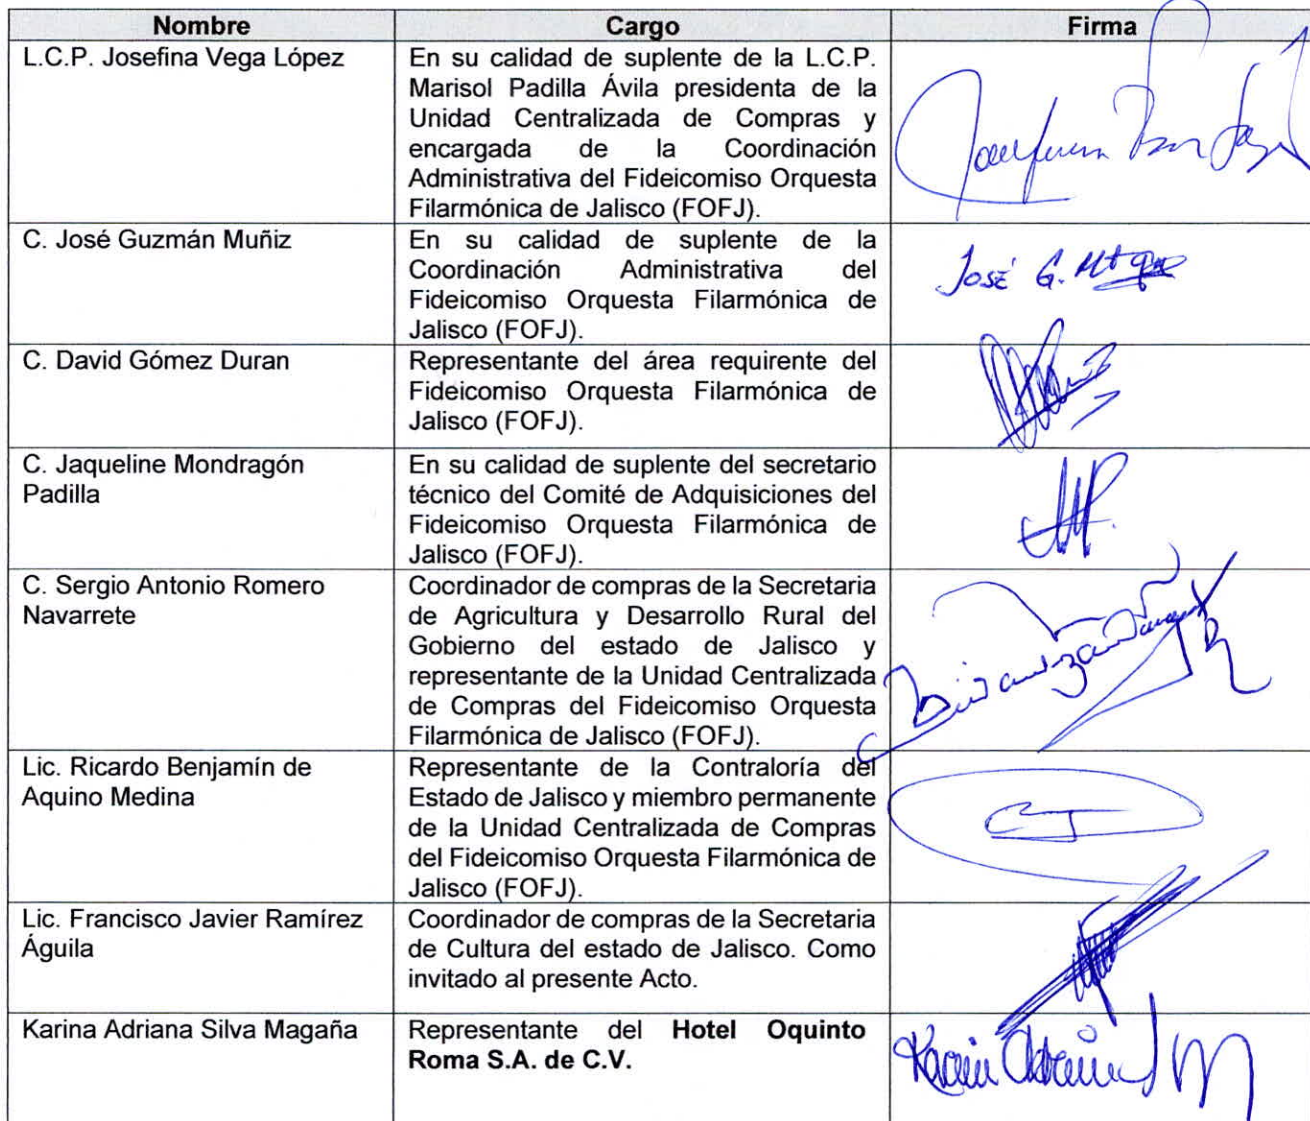 Nombre Cargo Firma
L.C.P. Josefina Vega López
En su calidad de suplente de la L.C.P.
Marisol Padilla Ávila presidenta de la
Unidad Centralizada de Compras y
encargada de la Coordinación
Administrativa del Fideicomiso Orquesta
Filarmónica de Jalisco (FOFJ).
C. José Guzmán Muñiz
En su calidad de suplente de la
Coordinación Administrativa del
Fideicomiso Orquesta Filarmónica de
Jalisco (FOFJ).
José G.
C. David Gómez Duran
Representante del área requirente del
Fideicomiso Orquesta Filarmónica de
Jalisco (FOFJ).
C. Jaqueline Mondragón
Padilla
En su calidad de suplente del secretario
técnico del Comité de Adquisiciones del
Fideicomiso Orquesta Filarmónica de
Jalisco (FOFJ).
C. Sergio Antonio Romero
Navarrete
Coordinador de compras de la Secretaria
de Agricultura y Desarrollo Rural del
Gobierno del estado de Jalisco y
representante de la Unidad Centralizada
de Compras del Fideicomiso Orquesta
Filarmónica de Jalisco (FOFJ).
Lic. Ricardo Benjamín de
Aquino Medina
Representante de la Contraloría del
Estado de Jalisco y miembro permanente
de la Unidad Centralizada de Compras
del Fideicomiso Orquesta Filarmónica de
Jalisco (FOFJ).
Lic. Francisco Javier Ramírez
Águila
Coordinador de compras de la Secretaria
de Cultura del estado de Jalisco. Como
invitado al presente Acto.
Karina Adriana Silva Magaña
Representante del Hotel Oquinto
Roma S.A. de C.V.